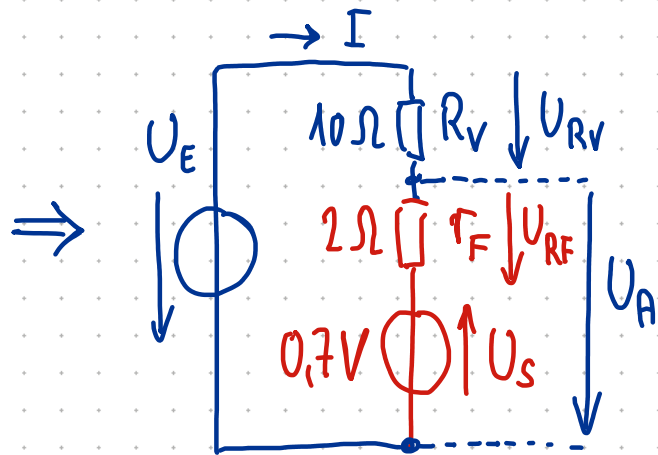 I
10Ω R_V U_RV
U_E
2Ω r_F U_RF
U_A
0,7V U_S